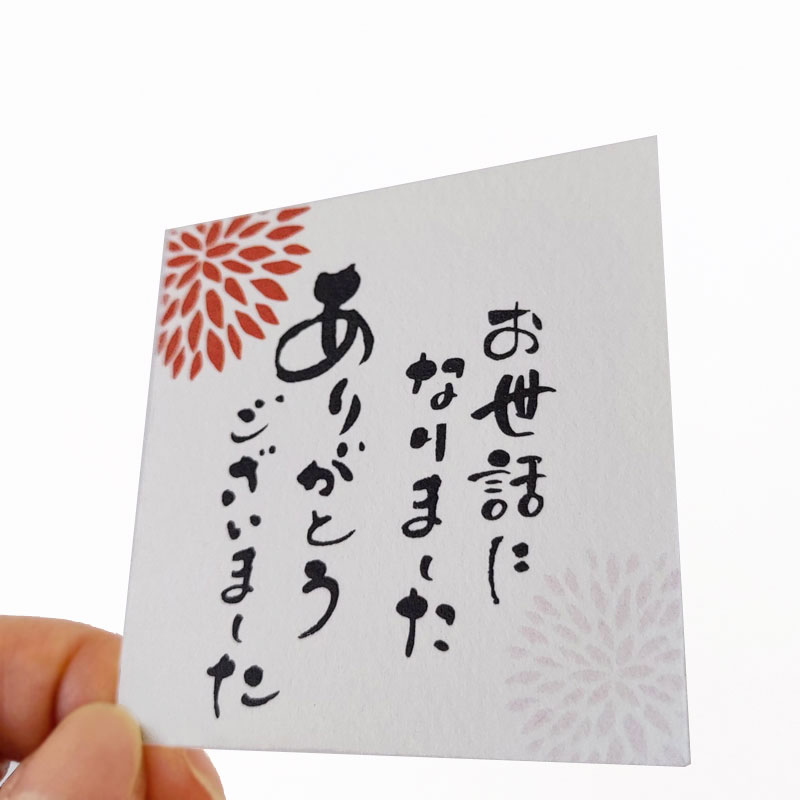 お世話に
なりました
ありがとう
ございました